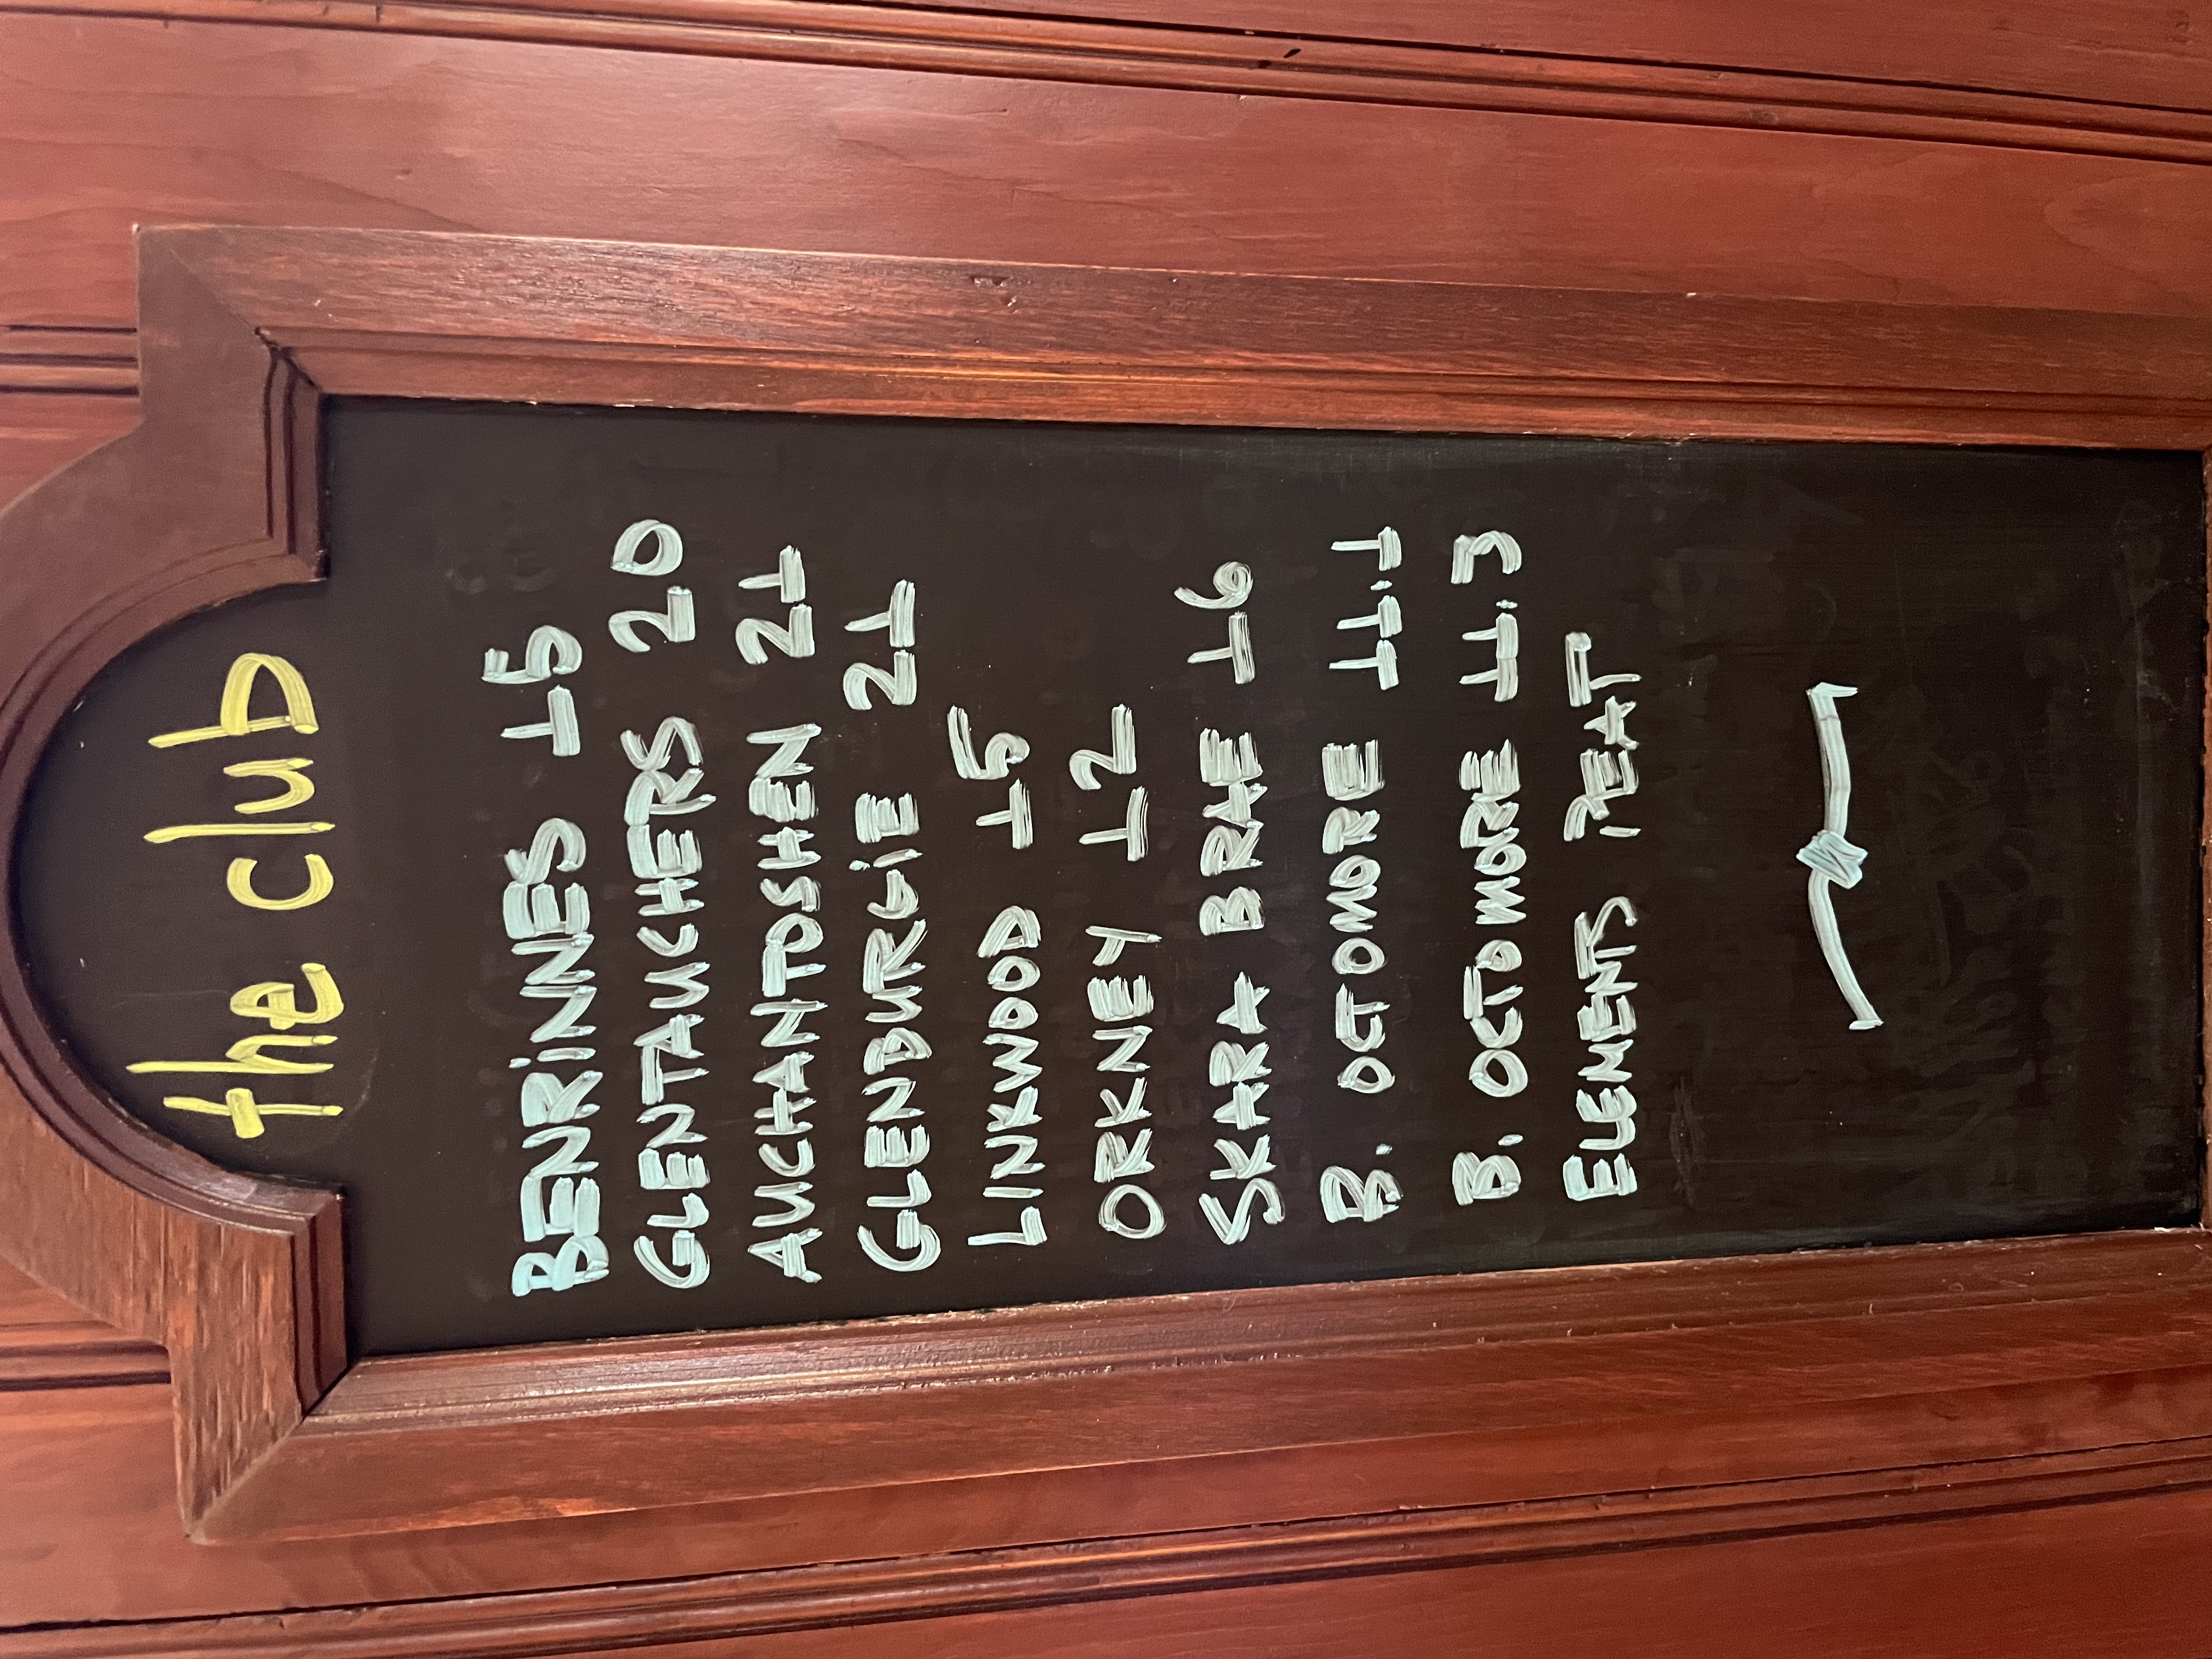 the club
BENRiNNES 15
GLENTAUCHERS 20
AUCHANTOSHEN 21
GLENBURGiE 21
LINKWOOD 15
ORKNEY 12
SKARA BRAE 16
B. OCTOMORE 11.1
B. OCTOMORE 11.3
ELEMENTS PEAT